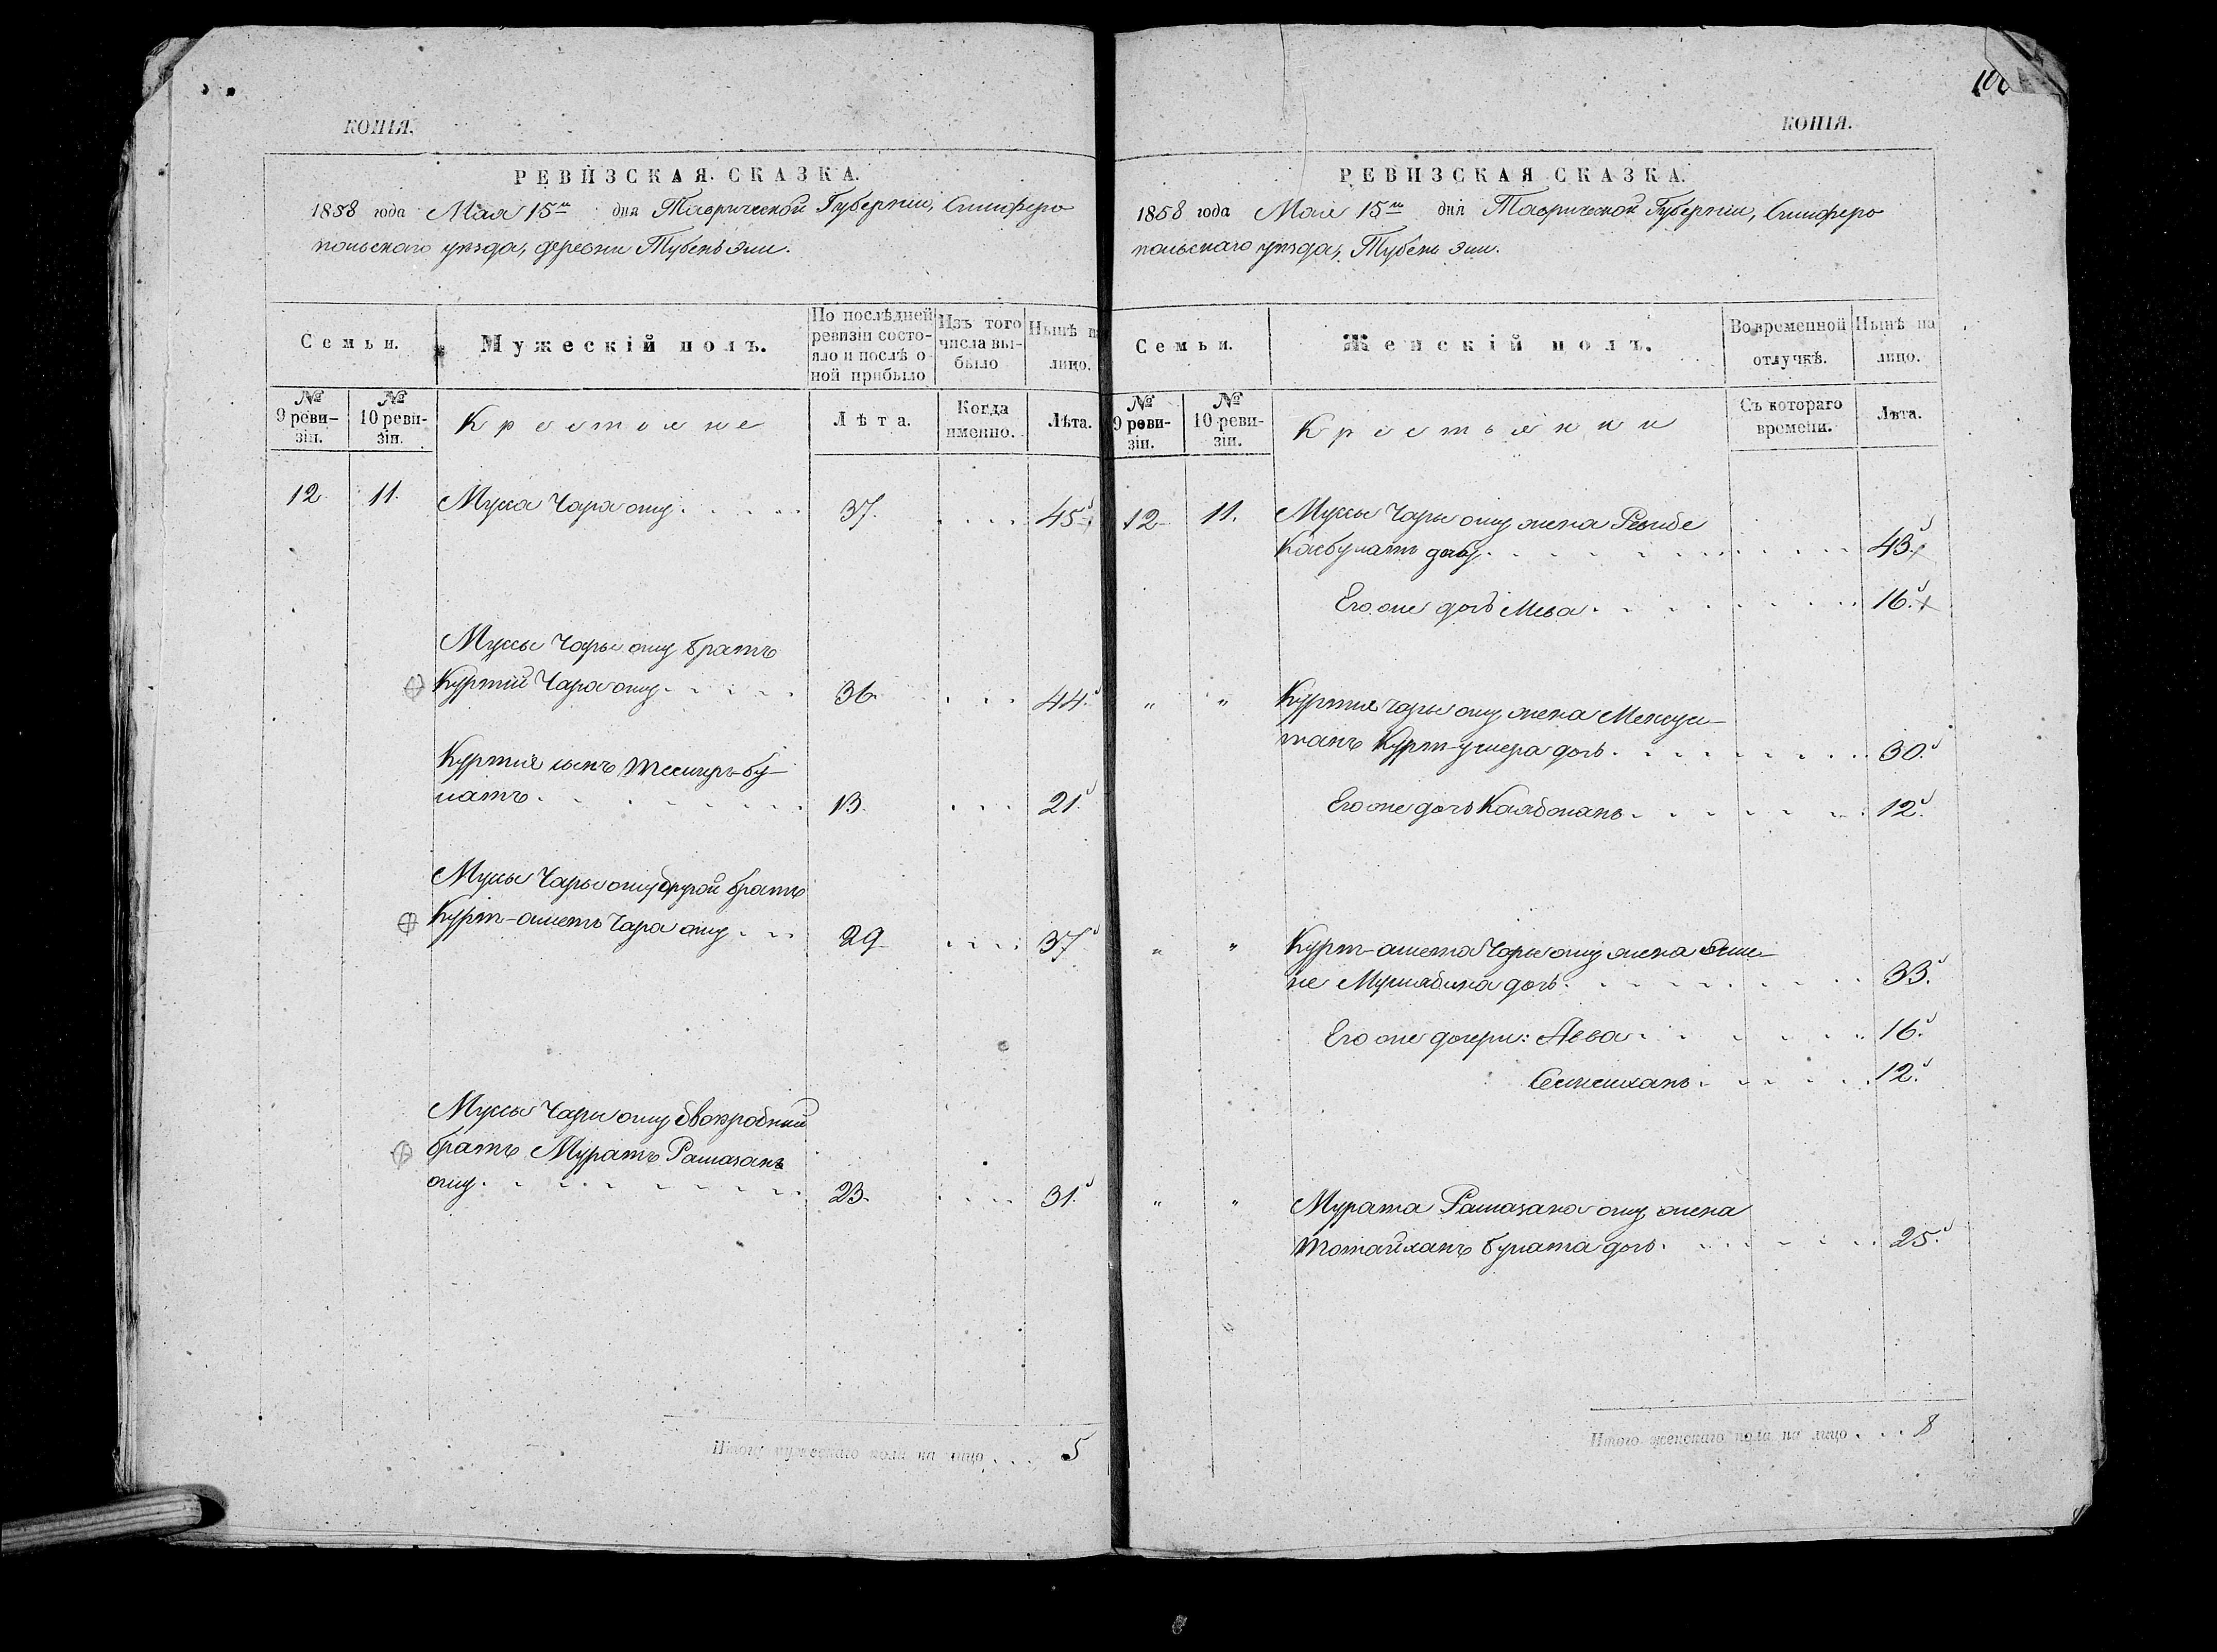 КОПІЯ.
РЕВИЗСКАЯ СКАЗКА.
1858 года Мая 15го дня Таврической Губерніи, Симферо
польскаго уѣзда, деревни Тубень эли.
Семьи.
Мужескій полъ.
По послѣдней ревизіи состояло и послѣ оной прибыло
Изъ того числа выбыло
Нынѣ на лицо.
№ 9 ревизіи.
№ 10 ревизіи.
Крестьяне
Лѣта.
Когда именно.
Лѣта.
12. 11. Мусса Чара оглу 37. 45
Муссы Чары оглу братъ
Куртій Чара оглу 36. 44.
Куртія сынъ Темиръ-бу-
латъ 13. 21.
Муссы Чары оглу другой братъ
Курт-аметъ Чара оглу 29 37
Муссы Чары оглу двоюродный
братъ Муратъ Рамазанъ
оглу 23. 31.
Итого мужескаго пола на лицо 5
КОПІЯ.
РЕВИЗСКАЯ СКАЗКА.
1858 года Мая 15го дня Таврической Губерніи, Симферо
польскаго уѣзда, Тубень эли.
Семьи.
Женскій полъ.
Во временной отлучкѣ.
Нынѣ на лицо.
№ 9 ревизіи.
№ 10 ревизіи.
Крестьянки
Съ котораго времени.
Лѣта.
12 11. Муссы Чары оглу жена
Касбулатъ дочь 43.
Его же дочь Мева 16.
" " Куртія Чары оглу жена
Курт-умера дочь 30.
Его же дочь 12.
" " Курт-амета Чары оглу жена
дочь 33.
Его же дочери: Авва 16.
12.
" " Мурата Рамазана оглу жена
Тотайханъ булата дочь 25.
Итого женскаго пола на лицо 8